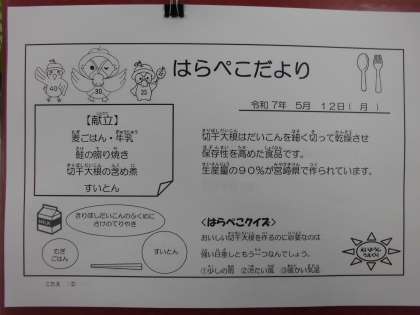 はらぺこだより
令和7年 5月 12日(月)
40
30
20
【献立】
麦ごはん・牛乳
鮭の照り焼き
切干大根の含め煮
すいとん
切干大根はだいこんを細く切って乾燥させ
保存性を高めた食品です。
生産量の90%が宮崎県で作られています。
きりぼしだいこんのふくめに
さけのてりやき
むぎ
ごはん
すいとん
<はらぺこクイズ>
おいしい切干大根を作るのに必要なのは
強い日差しともう一つなんでしょう。
①少しの雨 ②冷たい風 ③暖かい気温
こたえ:②